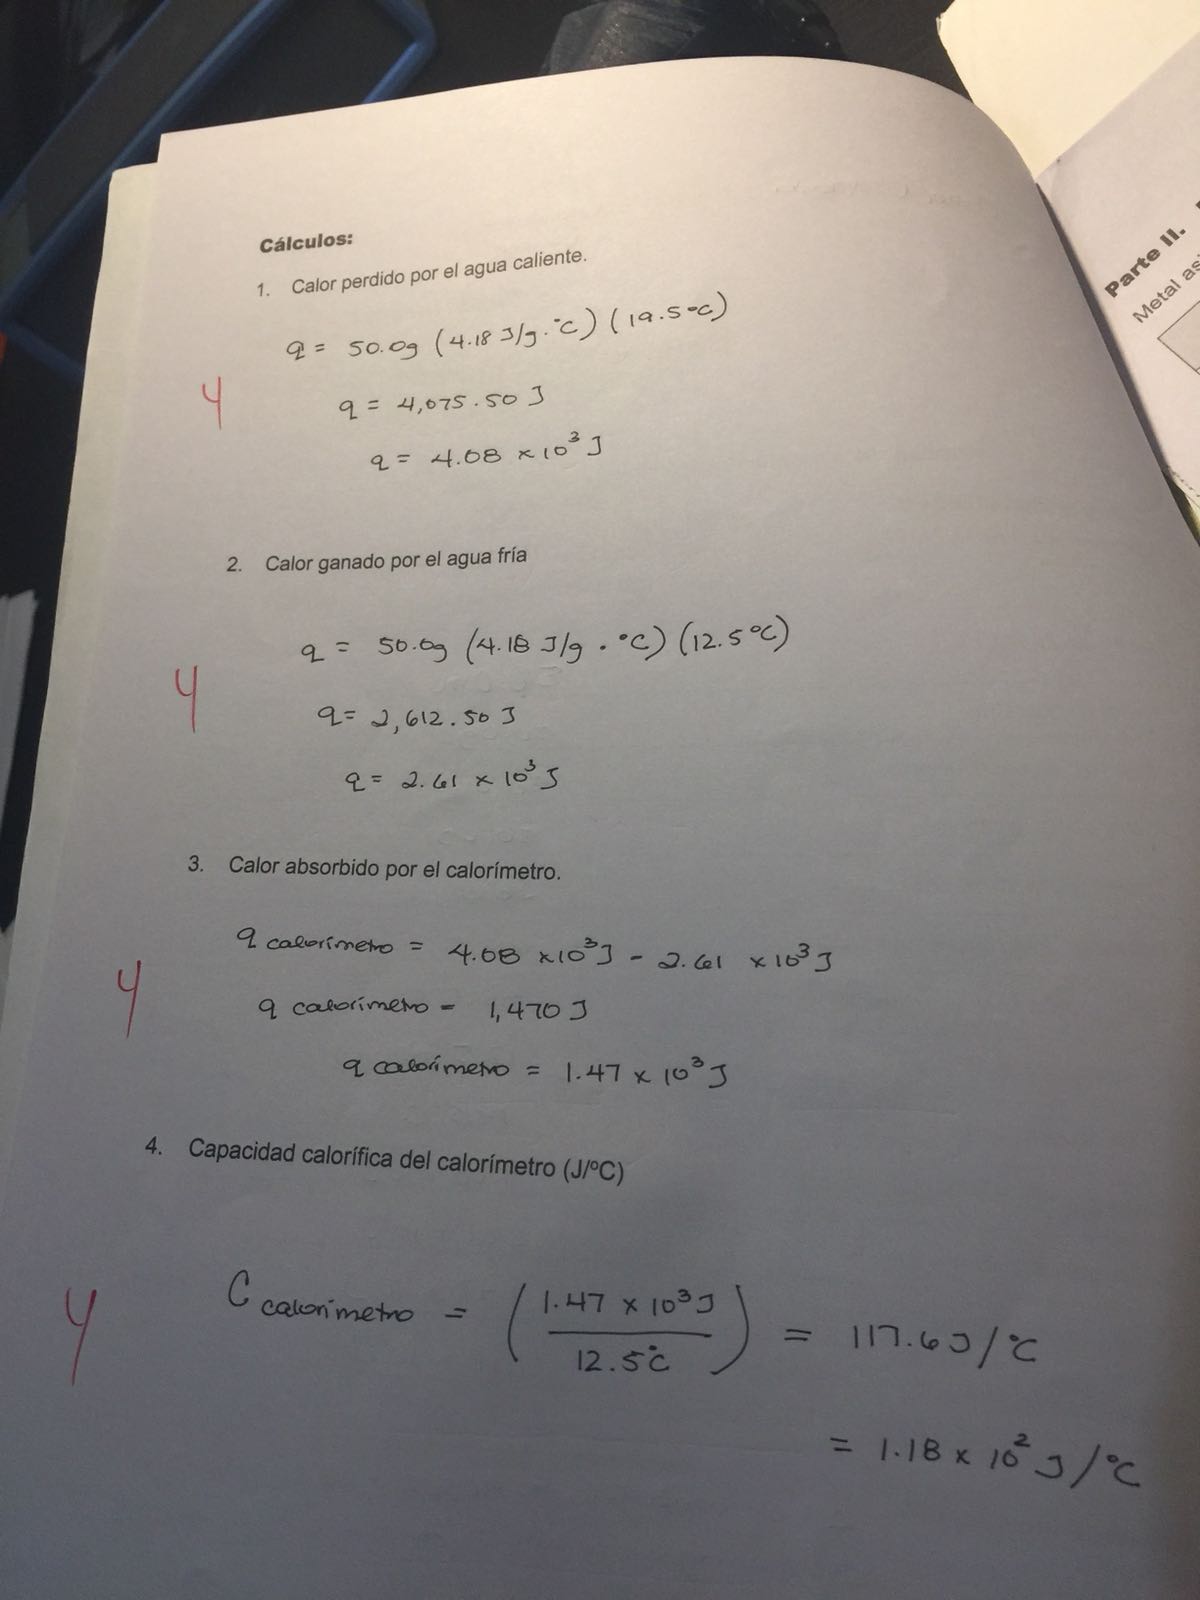 Cálculos:
1. Calor perdido por el agua caliente.
q = 50.0g (4.18 J/g.°C) (19.5°C)
4
q = 4,075.50 J
q = 4.08 x10³ J
2. Calor ganado por el agua fría
q = 50.0g (4.18 J/g . °C) (12.5°C)
4
q = 2,612.50 J
q = 2.61 x 10³ J
3. Calor absorbido por el calorímetro.
q calorímetro = 4.08 x10³ J - 2.61 x10³ J
4
q calorímetro = 1,470 J
q calorímetro = 1.47 x 10³ J
4. Capacidad calorífica del calorímetro (J/ºC)
4
C calorímetro = (1.47 x 10³ J / 12.5°C) = 117.6 J/°C
= 1.18 x 10² J/°C
Parte II.
Metal